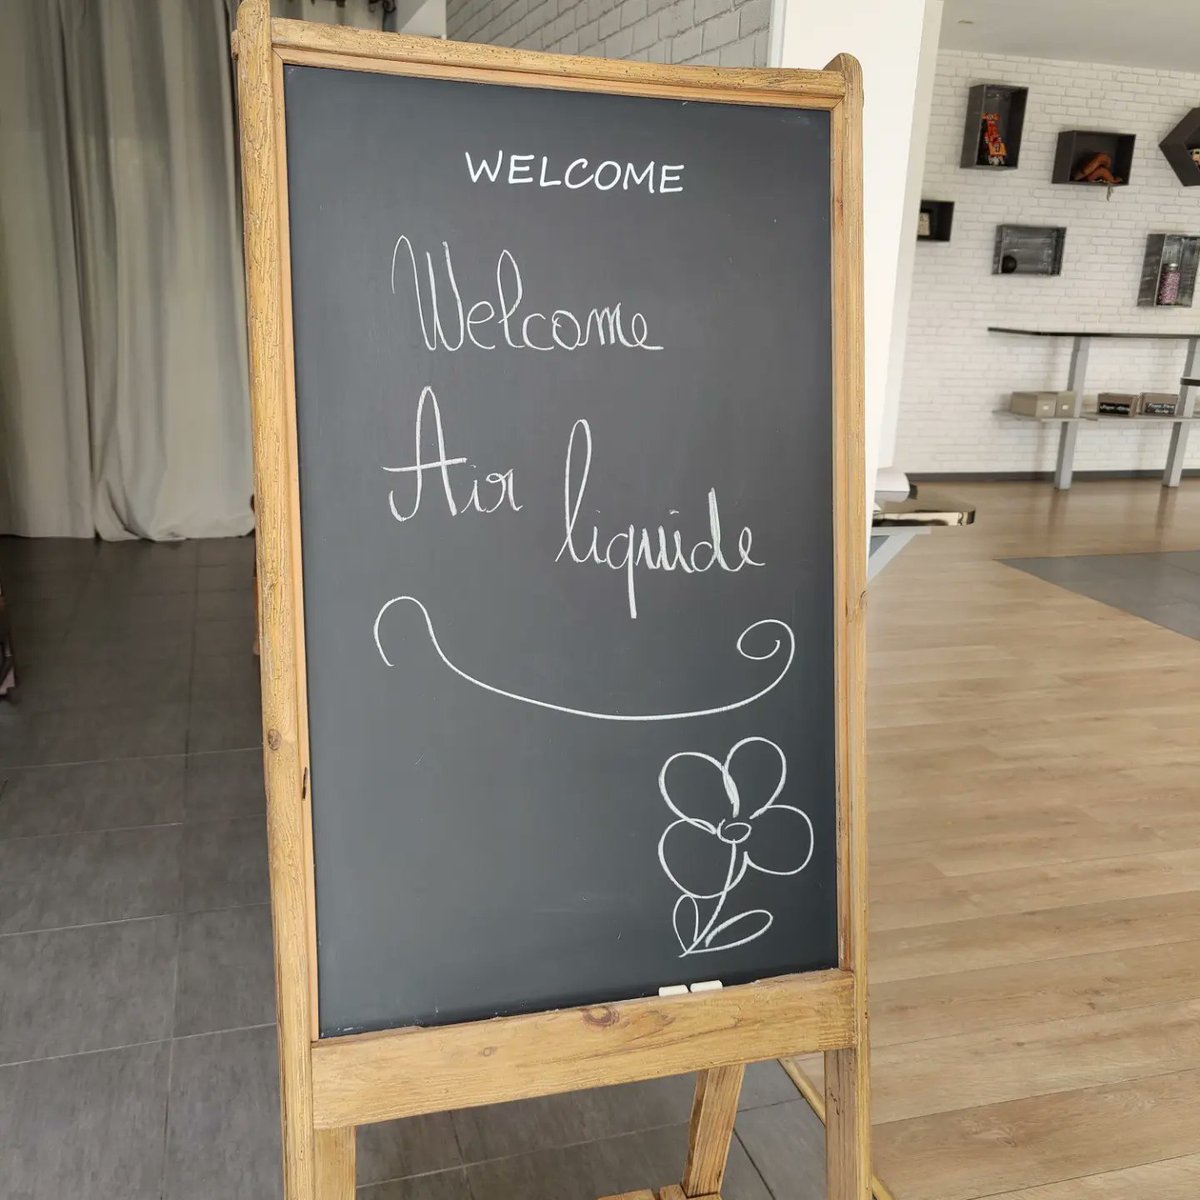 WELCOME
Welcome
Air
liquide